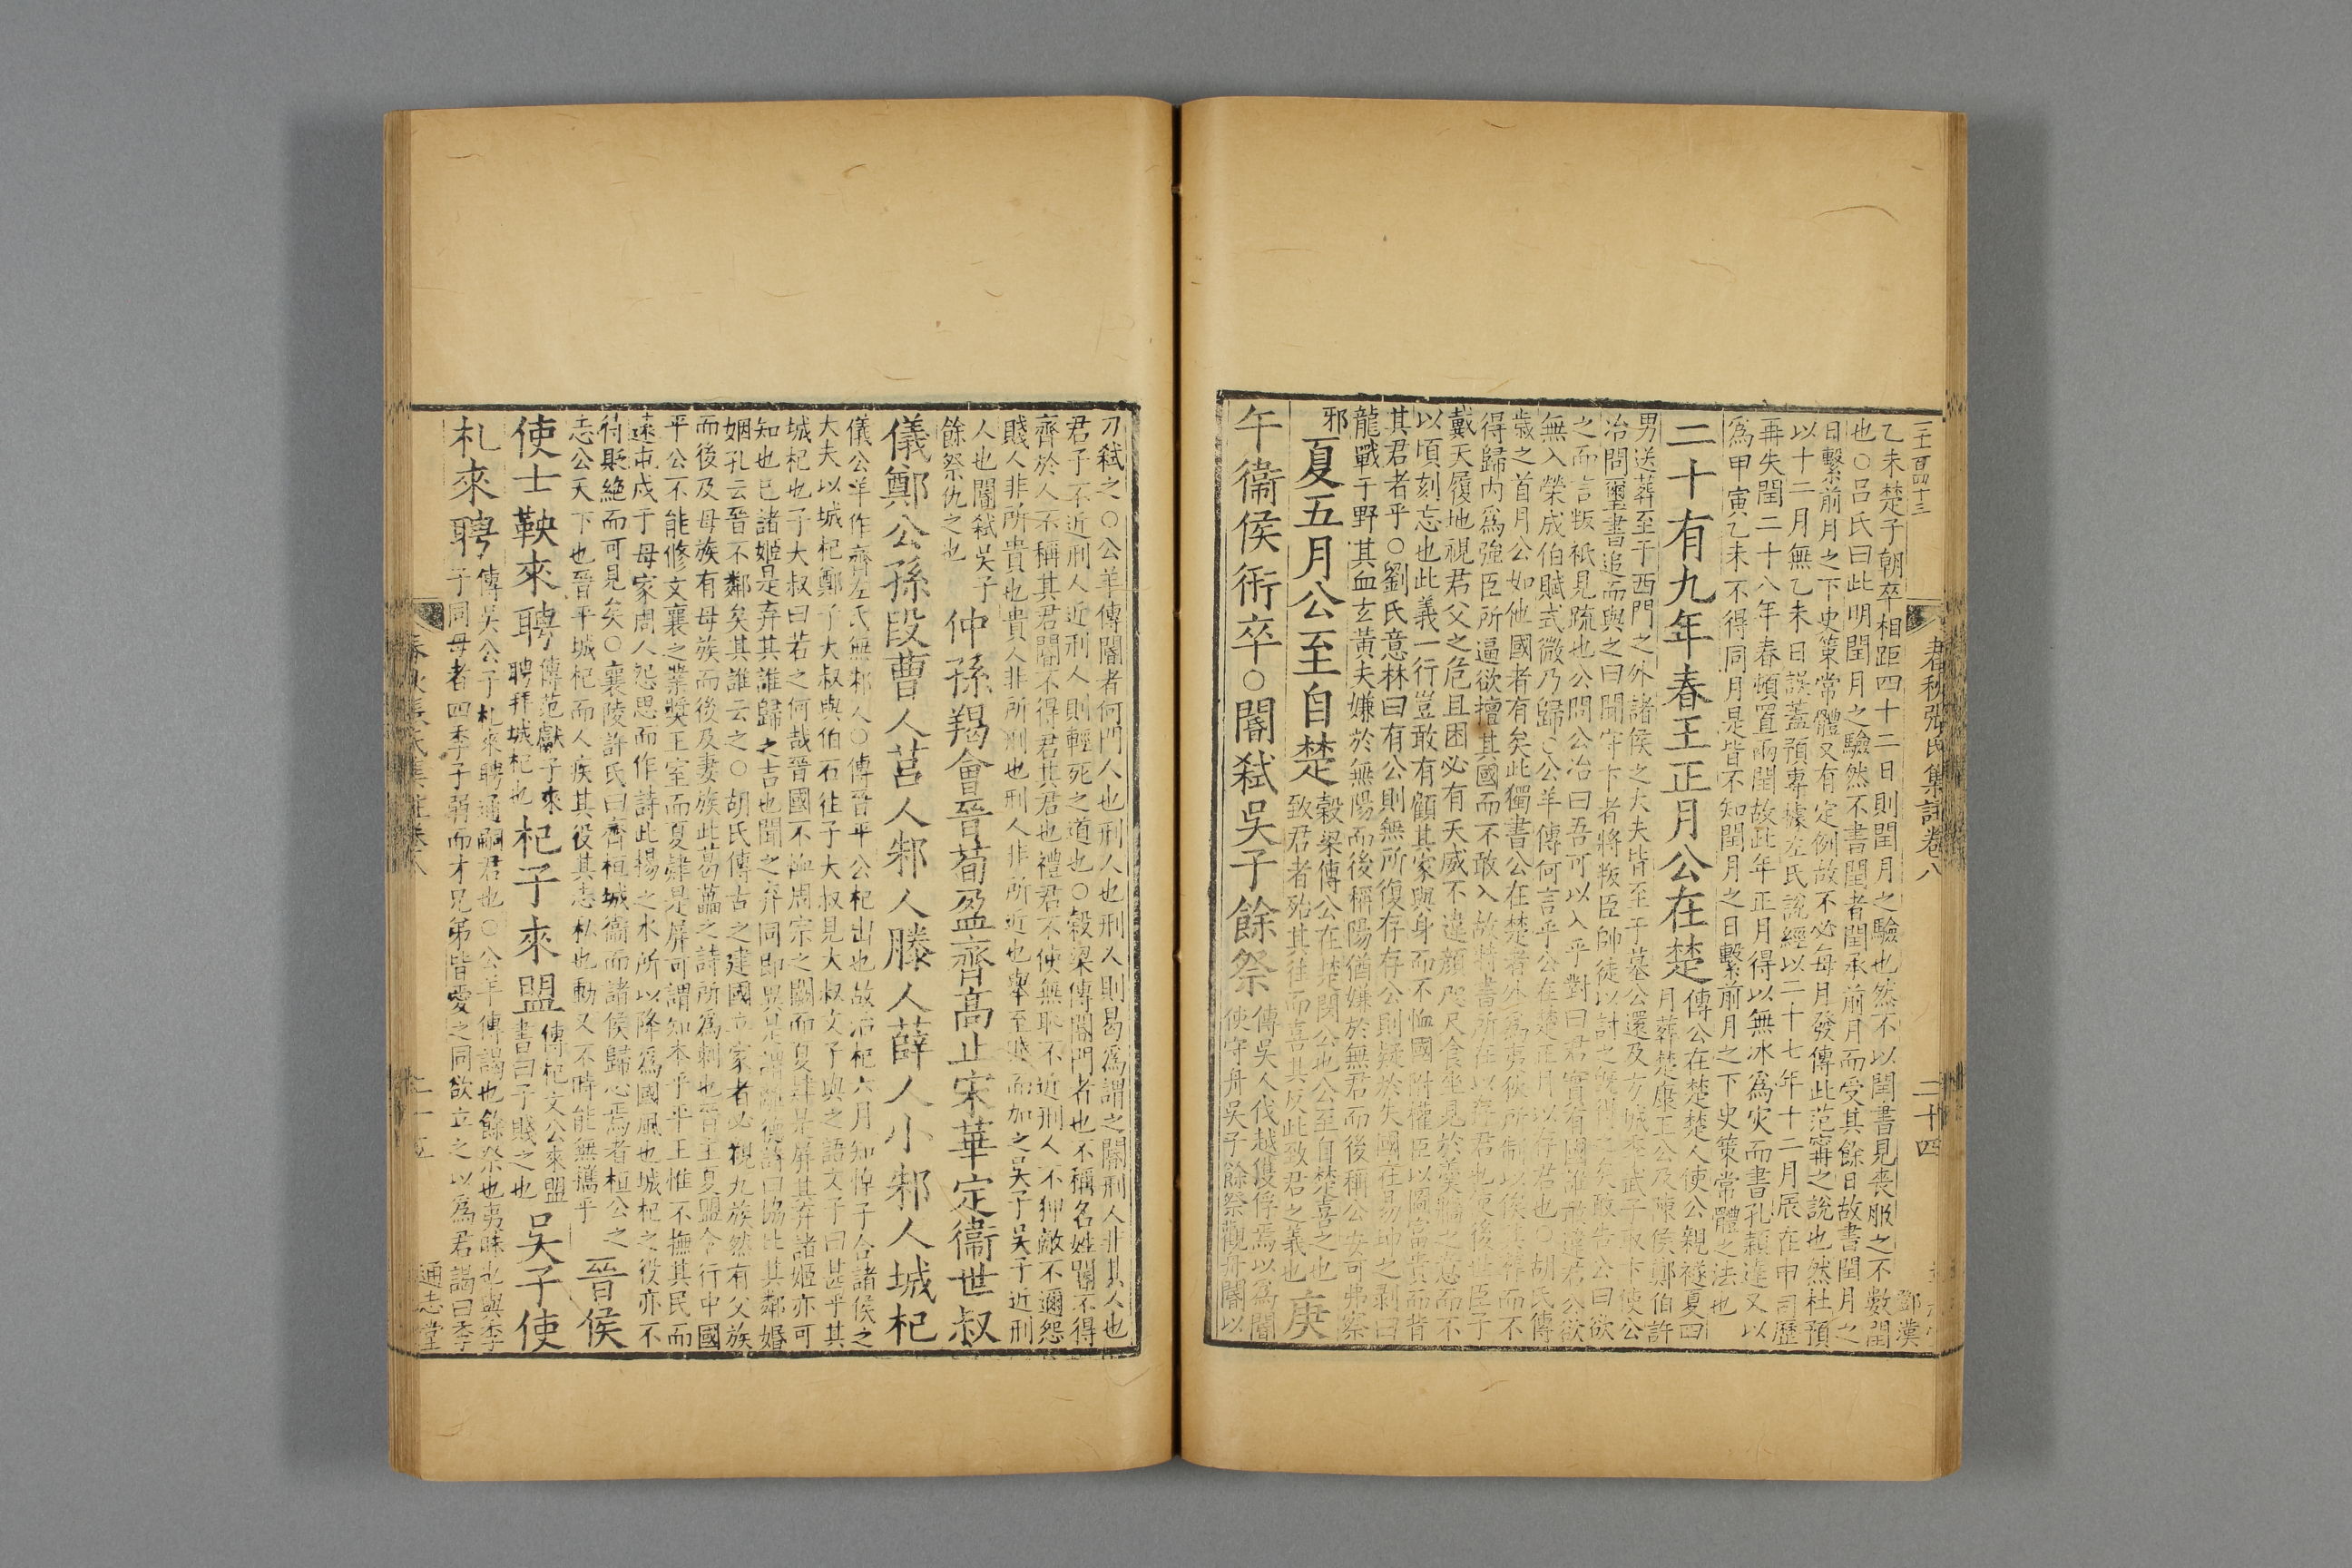 乙未楚子朝卒相距四十二日則閏月之驗也然不以閏書見喪服之不數閏
也○呂氏曰此明閏月之驗然不書閏者閏承前月而受其餘日故書閏月之
日繫前月之下史策常體又有定例故不必每月發傳此范甯之說也然杜預
以十二月無乙未日誤蓋預專據左氏說經以二十七年十二月辰在申司歷
再失閏二十八年春頓置兩閏故此年正月得以無冰為灾而書孔穎達又以
為甲寅乙未不得同月是皆不知閏月之日繫前月之下史策常體之法也
二十有九年春王正月公在楚
傳公在楚楚人使公親襚夏四
月葬楚康王公及陳侯鄭伯許
男送葬至于西門之外諸侯之大夫皆至于墓公還及方城季武子取卞使公
冶問璽書追而與之曰聞守卞者將叛臣帥徒以討之既得之矣敢告公曰欲
之而言叛衹見疏也公問公冶曰吾可以入乎對曰君實有國誰敢違君公欲
無入榮成伯賦式微乃歸○公羊傳何言乎公在楚正月以存君也○胡氏傳
歲之首月公如他國者有矣此獨書公在楚者外為夷狄所制以俟其作而不
得歸內為強臣所逼欲擅其國而不敢入故特書所在以存君也使後世臣子
戴天履地視君父之危且困必有天威不違顏咫尺食坐見於羹牆之意而不
以頃刻忘也此義一行豈敢有顧其家與身而不恤國附權臣以圖富貴而背
其君者乎○劉氏意林曰有公則無所復存存公則疑於失國在易坤之剥曰
龍戰于野其血玄黃夫嫌於無陽而後稱陽猶嫌於無君而後稱公安可弗察
邪
夏五月公至自楚
穀梁傳公在楚閔公也公至自楚喜之也
致君者殆其往而喜其反此致君之義也
庚
午衞侯衎卒○閽弑吳子餘祭
傳吳人伐越獲俘焉以為閽
使守舟吳子餘祭觀舟閽以
春秋張氏集註卷八
二十四
鄧漢
刀弑之○公羊傳閽者何門人也刑人也刑人則曷為謂之閽刑人非其人也
君子不近刑人近刑人則輕死之道也○穀梁傳閽門者也不稱名姓閽不得
齊於人不稱其君閽不得君其君也禮君不使無恥不近刑人不狎敵不邇怨
賤人非所貴也貴人非所刑也刑人非所近也舉至賤而加之吳子吳子近刑
人也閽弑吳子
餘祭仇之也
仲孫羯會晉荀盈齊高止宋華定衞世叔
儀鄭公孫段曹人莒人邾人滕人薛人小邾人城杞
儀公羊作齊左氏無邾人○傳晉平公杞出也故治杞六月知悼子合諸侯之
大夫以城杞鄭子大叔與伯石往子大叔見大叔文子與之語文子曰甚乎其
城杞也子大叔曰若之何哉晉國不恤周宗之闕而夏肄是屏其弃諸姬亦可
知也已諸姬是弃其誰歸之吉也聞之弃同即異是謂離德詩曰協比其鄰婚
姻孔云晉不鄰矣其誰云之○胡氏傳古之建國立家者必親九族然有父族
而後及母族有母族而後及妻族此葛藟之詩所為刺也晉主夏盟令行中國
平公不能修文襄之業奬王室而夏肄是屏可謂知本乎平王惟不撫其民而
遠屯戍于母家周人怨思而作詩此揚之水所以降為國風也城杞之役亦不
待貶絶而可見矣○襄陵許氏曰齊桓城衞而諸侯歸心焉者桓公之
志公天下也晉平城杞而人疾其役其志私也動又不時能無攜乎
晉侯
使士鞅來聘
傳范獻子來
聘拜城杞也
杞子來盟
傳杞文公來盟
書曰子賤之也
吳子使
札來聘
傳吳公子札來聘通嗣君也○公羊傳謁也餘祭也夷昧也與季
子同母者四季子弱而才兄弟皆愛之同欲立之以為君謁曰季
二十五
通志堂